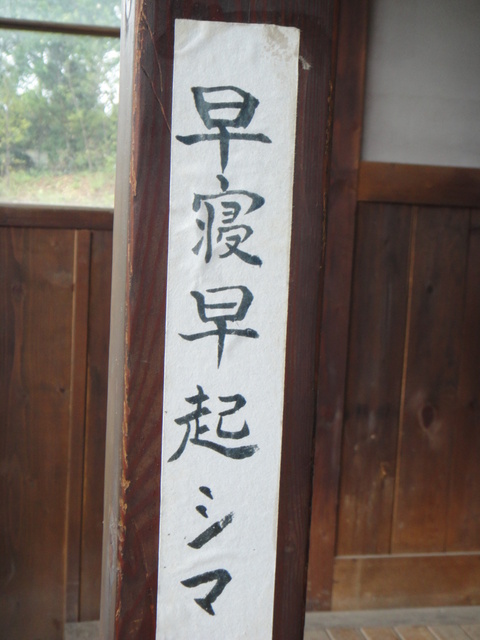 早寝早起シマ